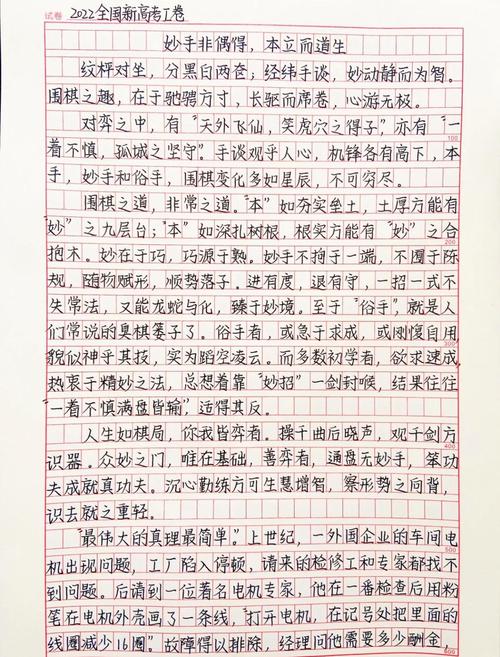 试卷 2022全国新高考I卷
妙手非偶得，本立而道生
纹枰对坐，分黑白两奁；经纬手谈，妙动静而为智。
围棋之趣，在于驰骋方寸，长驱而席卷，心游无极。
对弈之中，有“天外飞仙，笑虎穴之得子”，亦有“一
100
着不慎，孤城之坚守”。手谈观乎人心，机锋各有高下，本
手，妙手和俗手，围棋变化多如星辰，不可穷尽。
围棋之道，非常之道。“本”如夯实垒土，土厚方能有
“妙”之九层台；“本”如深扎树根，根实方能有“妙”之合
200
抱木。妙在于巧，巧源于熟。妙手不拘于一端，不囿于陈
规，随物赋形，顺势落子。进有度，退有守，一招一式不
失常法，又能龙蛇与化，臻于妙境。至于“俗手”，就是人
们常说的臭棋篓子了。俗手者，或急于求成，或刚愎自用，
300
貌似神乎其技，实为蹈空凌云。而多数初学者，欲求速成，
热衷于精妙之法，总想着靠“妙招”一剑封喉，结果往往
“一着不慎满盘皆输”，适得其反。
人生如棋局，你我皆弈者。操千曲后晓声，观千剑方
400
识器。众妙之门，唯在基础，善弈者，通盘无妙手，笨功
夫成就真功夫。沉心勤练方可生慧增智，察形势之向背，
识去就之重轻。
“最伟大的真理最简单。”上世纪，一外国企业的车间电
500
机出现问题，工厂陷入停顿，请来的检修工和专家都找不
到问题。后请到一位著名电机专家，他在一番检查后用粉
笔在电机外壳画了一条线，“打开电机，在记号处把里面的
线圈减少16圈。”故障得以排除，经理问他需要多少酬金，
600